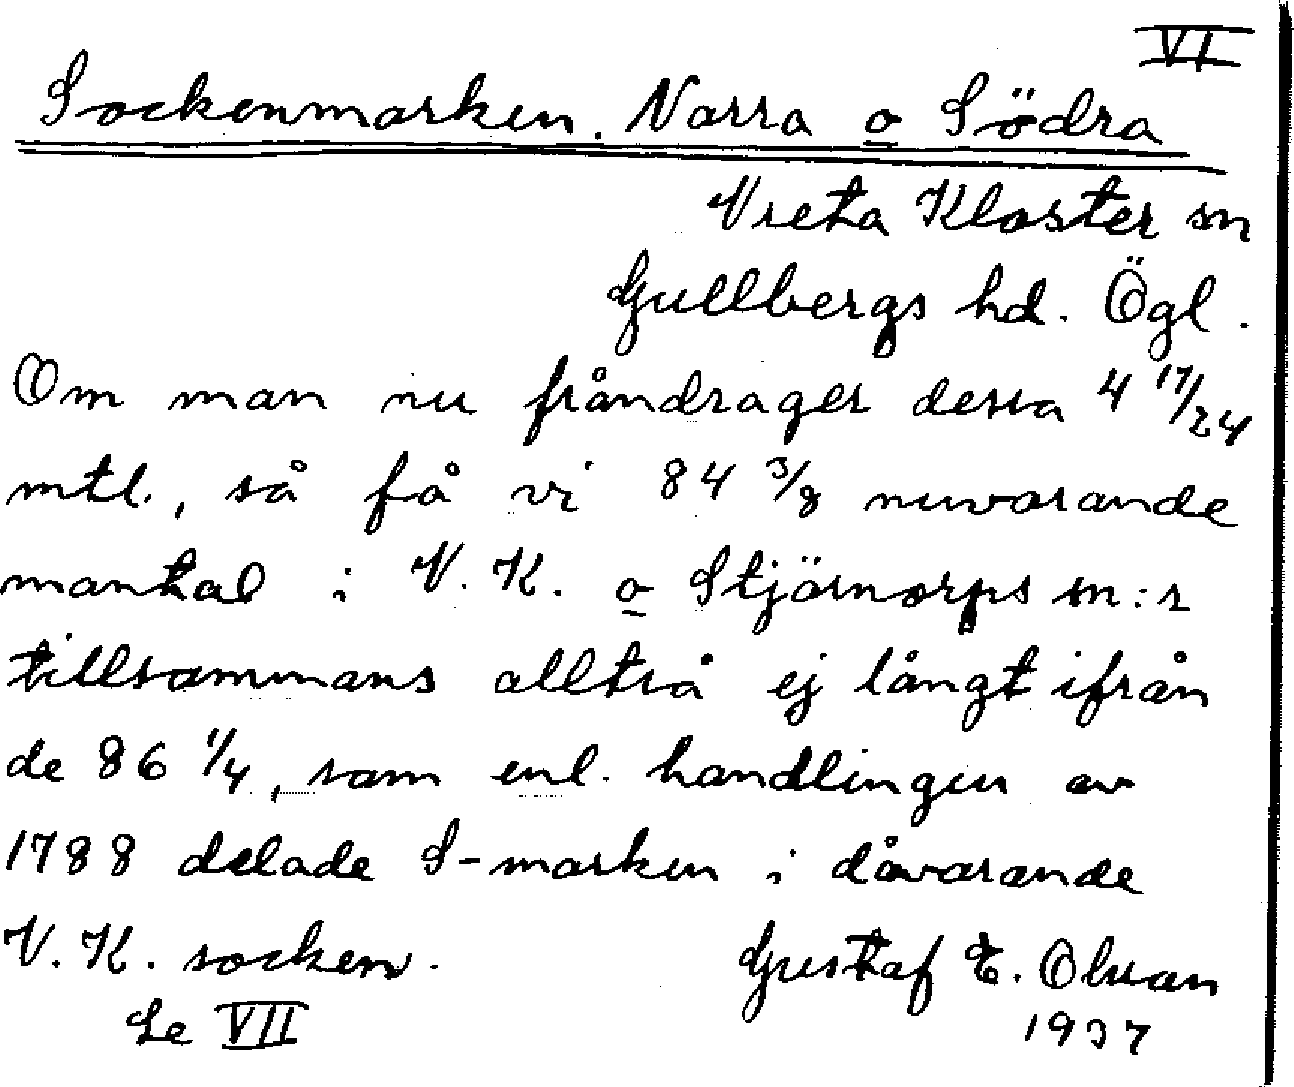 VI
Sockenmarken. Norra o Södra
Vreta Kloster sn
Gullbergs hd. Ögl.
Om man nu fråndrager dessa 4 17/24
mtl., så få vi 84 3/8 nuvarande
mantal i V. K. o Stjärnorps sn:r
tillsammans alltså ej långt ifrån
de 86 1/4, som enl. handlingen av
1788 delade S-marken i dåvarande
V. K. socken.
Gustaf E. Olsson
Se VII
1937